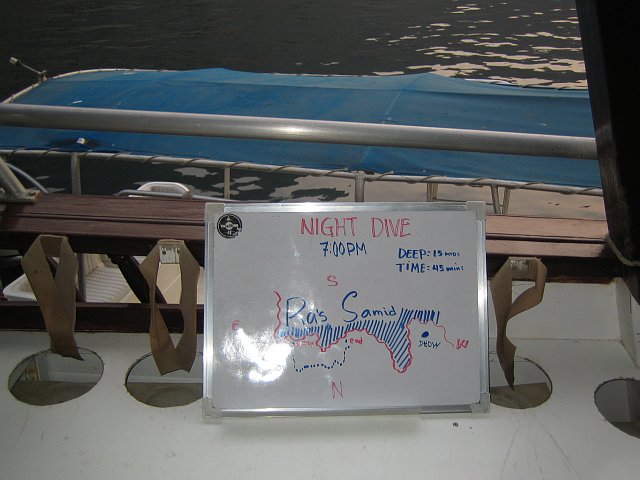 NIGHT DIVE
7:00PM
DEEP: 15 mtrs
TIME: 45 mins
S
Ra's Samid
E
end
DHOW
W
N